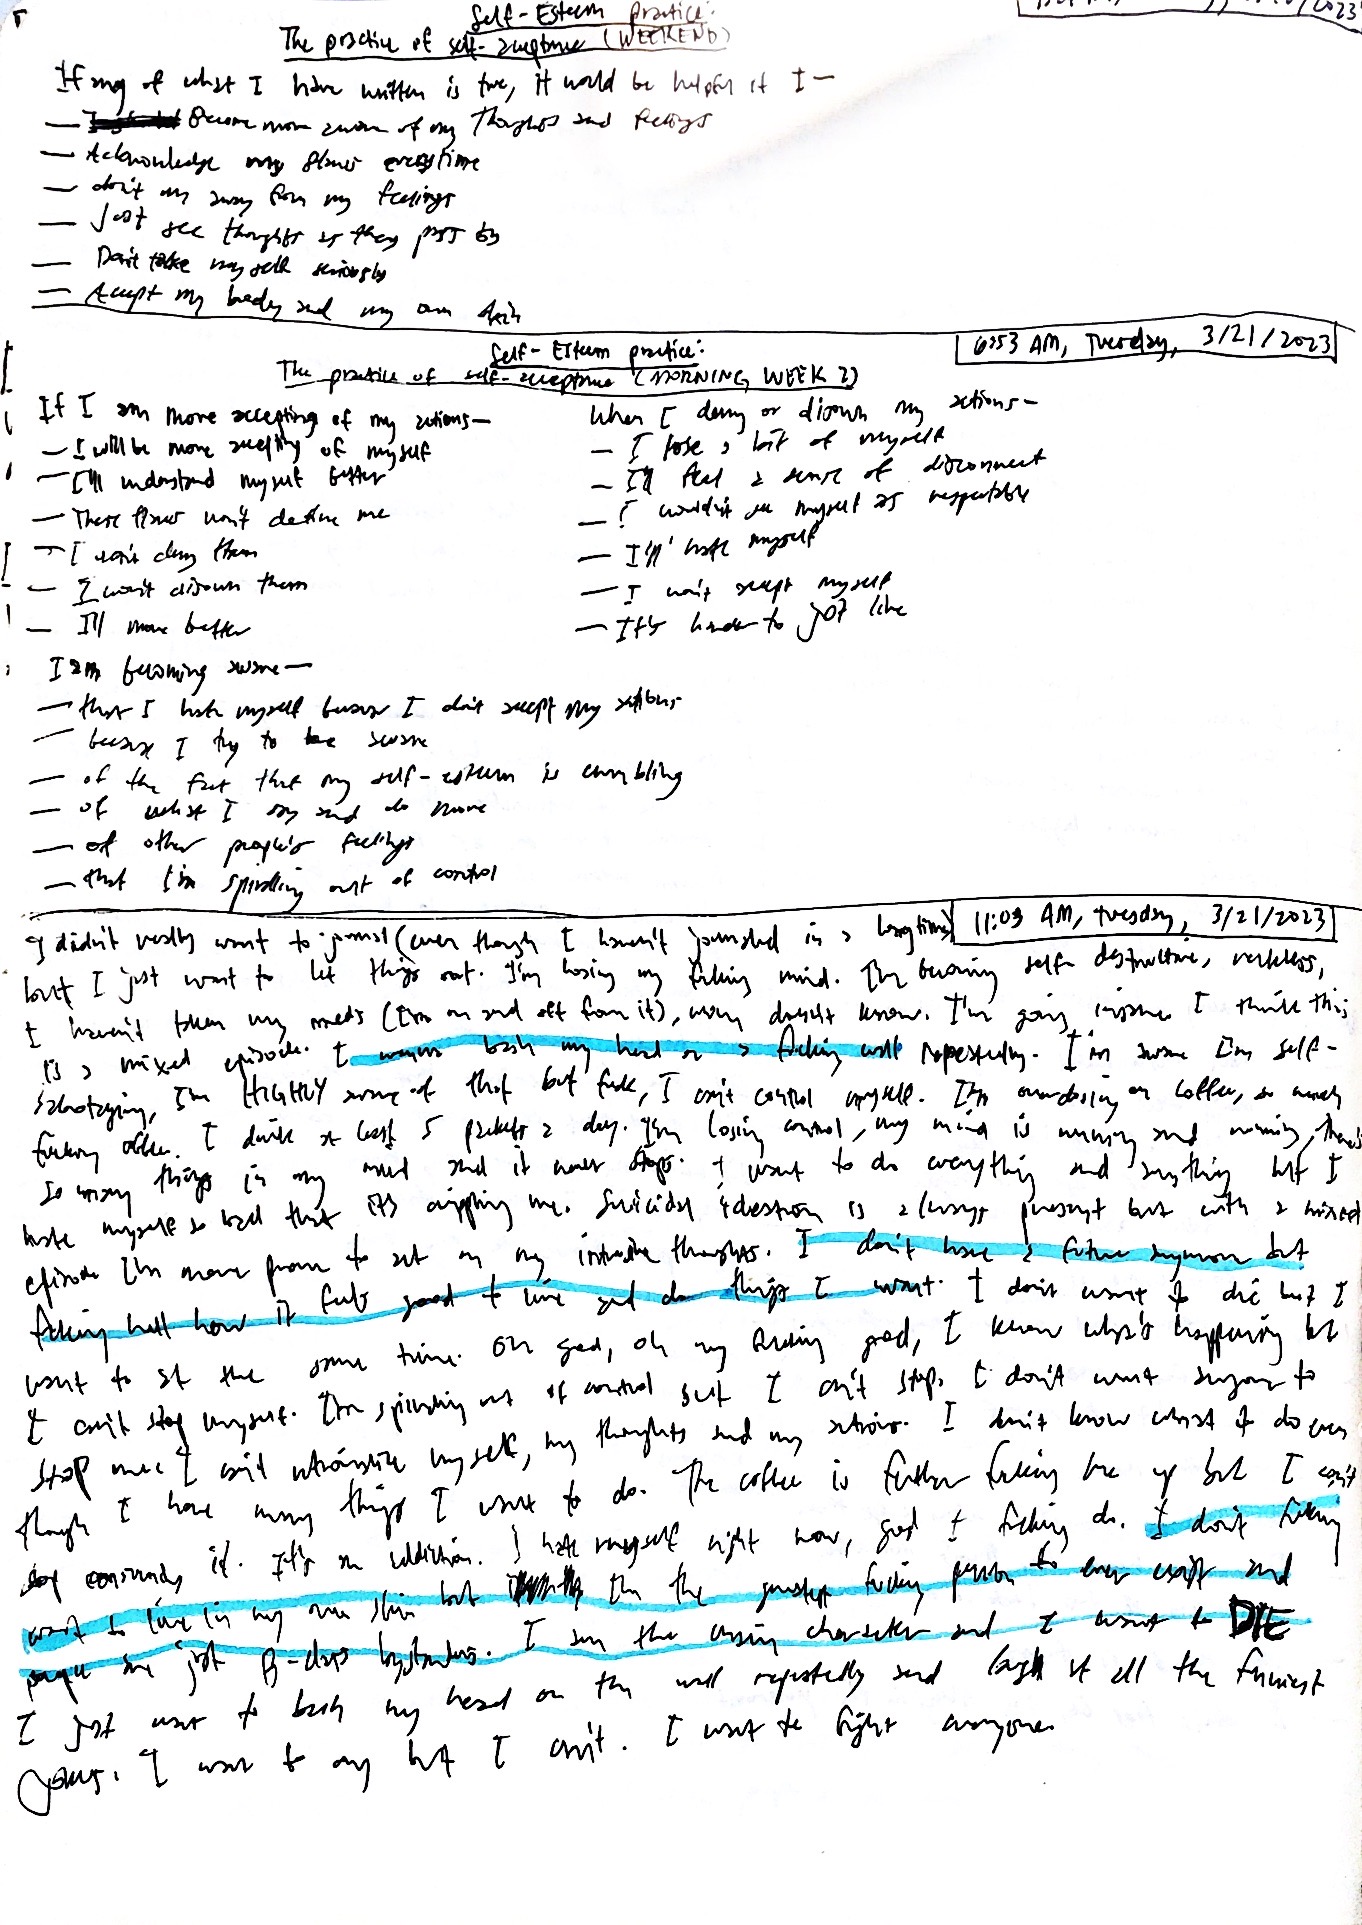 Self-Esteem practice:
The practice of self-acceptance (WEEKEND)
If any of what I have written is true, it would be helpful if I —
— Become more aware of my Thoughts and feelings
— Acknowledge my flaws everytime
— don't run away from my feelings
— Just see thoughts as they pass by
— Don't take myself seriously
— Accept my body and my own skin
6:53 AM, Tuesday, 3/21/2023
Self-Esteem practice:
The practice of self-acceptance (MORNING, WEEK 2)
If I am more accepting of my actions—
— I will be more accepting of myself
— I'll understand myself better
— These flaws won't define me
— I won't deny them
— I won't disown them
— I'll move better
When I deny or disown my actions—
— I lose a bit of myself
— I'll feel a sense of disconnect
— I wouldn't see myself as respectable
— I'll hate myself
— I won't accept myself
— It's harder to just live
I am becoming aware—
— that I hate myself because I don't accept my actions
— because I try to be aware
— of the fact that my self-esteem is crumbling
— of what I say and do more
— of other people's feelings
— that I'm spiralling out of control
11:03 AM, Tuesday, 3/21/2023
I didn't really want to journal (even though I haven't journaled in a longtime)
but I just want to let things out. I'm losing my fucking mind. I'm becoming self destructive, reckless,
I haven't taken my meds (I'm on and off from it), mom doesn't know. I'm going insane I think this
is a mixed episode. I wanna bash my head on a fucking wall repeatedly. I'm aware I'm self-
sabotaging, I'm HIGHLY aware of that but fuck, I can't control myself. I'm overdosing on coffee, so much
fucking coffee. I drink at least 5 packets a day. I'm losing control, my mind is running and running, there's
so many things in my mind and it never stops. I want to do everything and anything but I
hate myself so bad that it's crippling me. Suicidal ideation is always present but with a mixed
episode I'm more prone to act on my intrusive thoughts. I don't have a future anymore but
fucking hell how it feels good to live and do things I want. I don't want to die but I
want to at the same time. Oh god, oh my fucking god, I know what's happening but
I can't stop myself. I'm spiralling out of control but I can't stop. I don't want anyone to
stop me. I can't rationalize myself, my thoughts and my actions. I don't know what to do even
though I have many things I want to do. The coffee is further fucking me up but I can't
stop consuming it. It's an addiction. I hate myself right now, god I fucking do. I don't fucking
want to live in my own skin but I'm the greatest fucking person to ever exist and
people are just B-class bystanders. I am the main character and I want to DIE
I just want to bash my head on the wall repeatedly and laugh at all the funniest
jokes. I want to cry but I can't. I want to fight everyone.